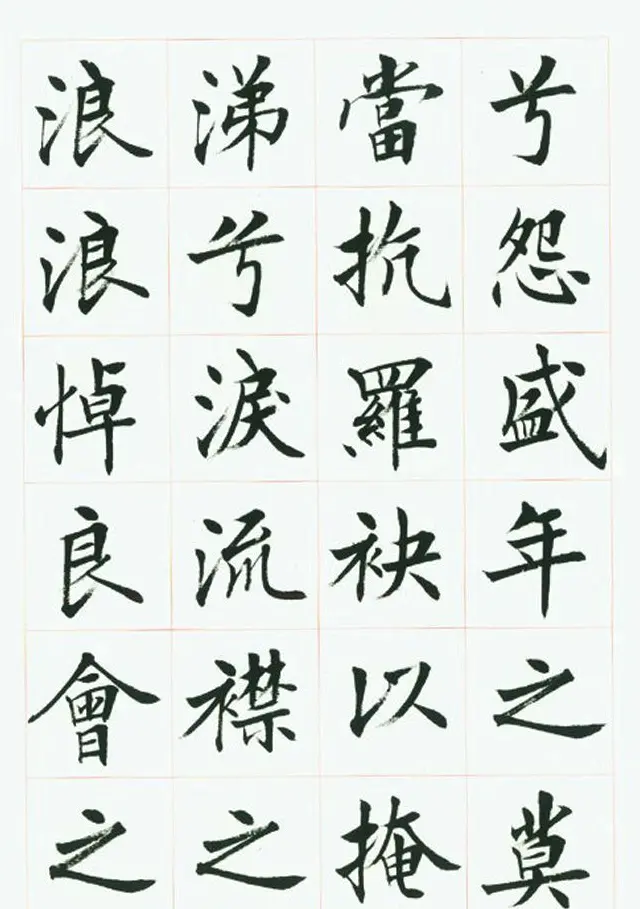 兮怨盛年之莫
當抗羅袂以掩
涕兮淚流襟之
浪浪悼良會之